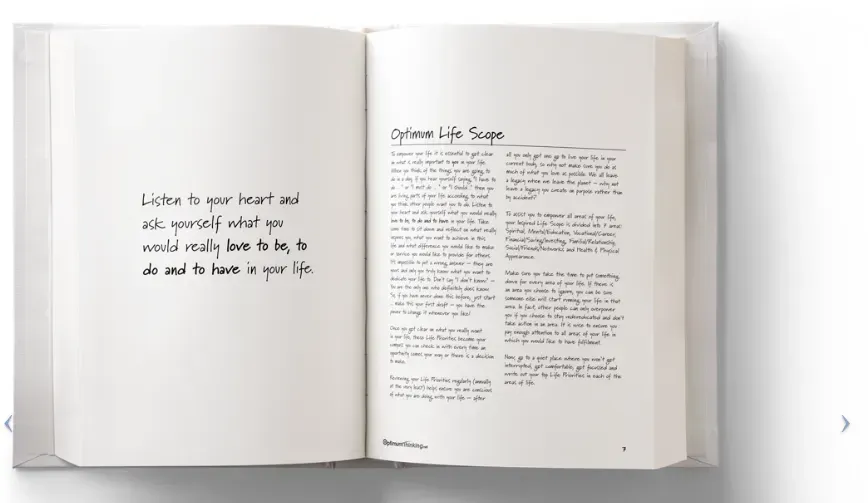 Listen to your heart and
ask yourself what you
would really love to be, to
do and to have in your life.
Optimum Life Scope
To empower your life it is essential to get clear
on what is really important to you in your life.
When you think of the things you are going to
do in a day, if you hear yourself saying, "I have to
do ..." or "I must do ..." or "I should..." then you
are living parts of your life according to what
you think other people want you to do. Listen to
your heart and ask yourself what you would really
love to be, to do and to have in your life. Take
some time to sit down and reflect on what really
inspires you, what you want to achieve in this
life and what difference you would like to make
or service you would like to provide for others.
It's impossible to put a wrong answer – they are
yours and only you truly know what you want to
dedicate your life to. Don't say "I don't know" –
You are the only one who definitely does know.
So if you have never done this before, just start
... make this your first draft – you have the
power to change it whenever you like!
Once you get clear on what you really want
in your life, these Life Priorities become your
compass you can check in with every time an
opportunity comes your way or there is a decision
to make.
Reviewing your Life Priorities regularly (annually
at the very least) helps ensure you are conscious
of what you are doing with your life – after
all you only get one go to live your life in your
current body, so why not make sure you do as
much of what you love as possible. We all leave
a legacy when we leave the planet – why not
leave a legacy you create on purpose rather than
by accident?
To assist you to empower all areas of your life,
your Inspired Life Scope is divided into 7 areas:
Spiritual, Mental/Education, Vocational/Career,
Financial/Saving/Investing, Familial/Relationship,
Social/Friends/Networks and Health & Physical
Appearance.
Make sure you take the time to put something
down for every area of your life. If there is
an area you choose to ignore, you can be sure
someone else will start running your life in that
area. In fact, other people can only overpower
you if you choose to stay undereducated and don't
take action in an area. It is wise to ensure you
pay enough attention to all areas of your life in
which you would like to have fulfilment.
Now, go to a quiet place where you won't get
interrupted, get comfortable, get focussed and
write out your top Life Priorities in each of the
areas of life.
OptimumThinking
7